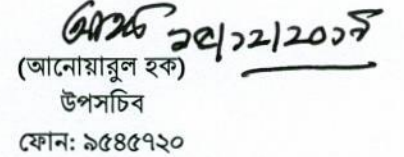 ২৫/১২/২০১৭
(আনোয়ারুল হক)
উপসচিব
ফোন: ৯৫৪৫৭২০